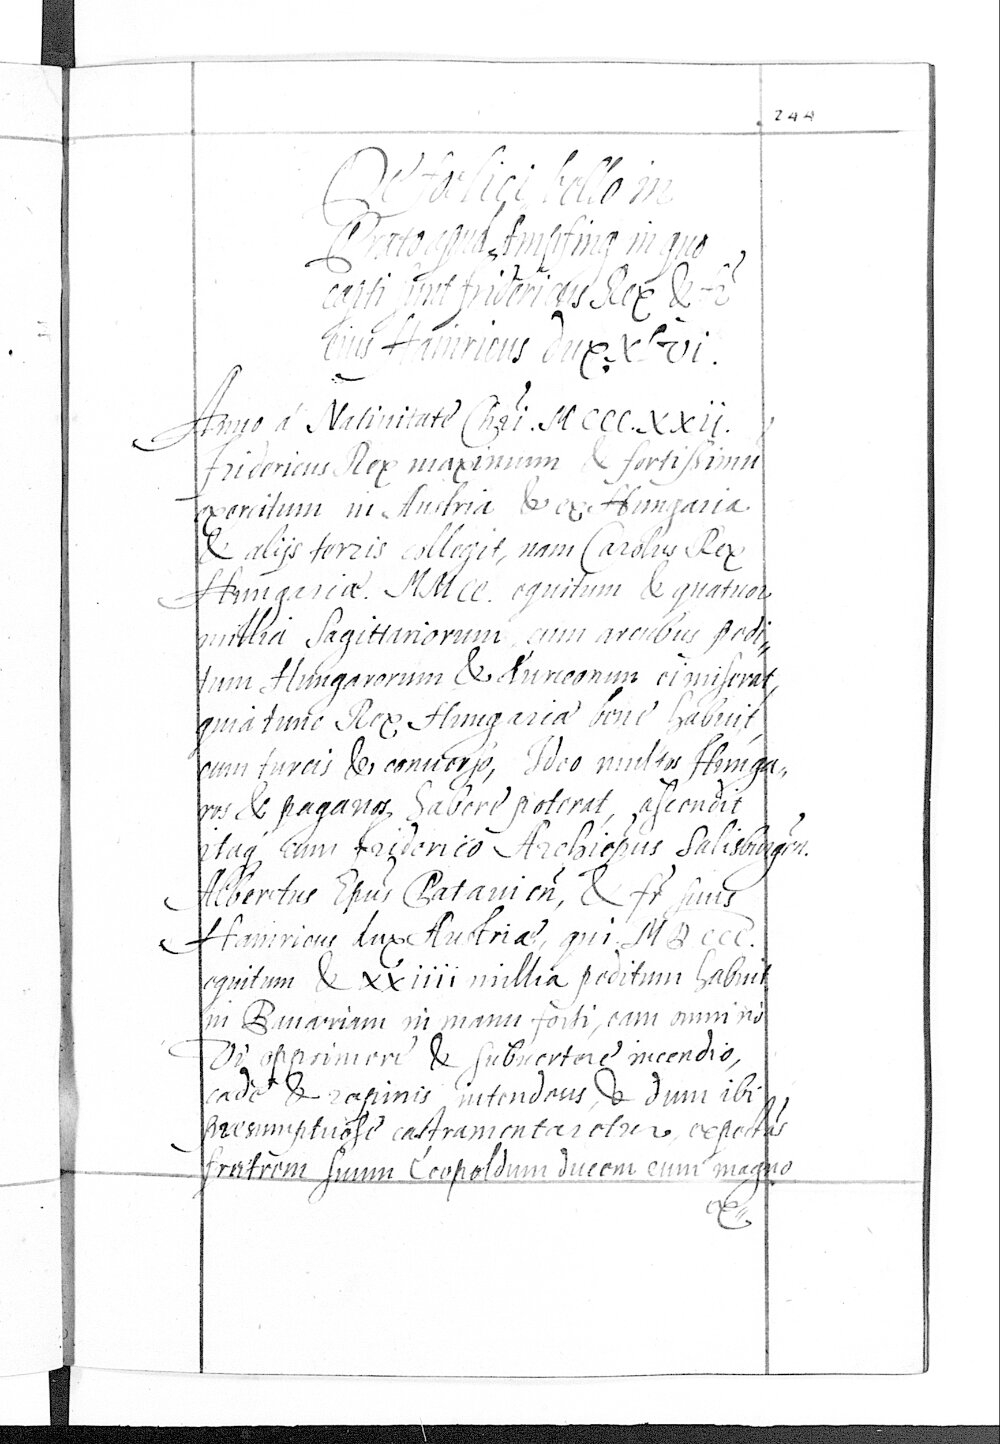 244
De foelici bello in
Prato apud Ampfing in quo
capti sunt fridericus Rex & fr̄
eius Hainricus dux. XLVI.
Anno á Natiuitate Chr̄i. MCCC.XXII.
fridericus Rex maximum & fortissimū
exercitum in Austria & ex Hungaria
& alijs terris collegit, nam Carolus Rex
Hungariæ. MMCC. equitum & quatuor
millia Sagittariorum, cum arcubus pedi„
tum Hungarorum & ei miserat,
quia tunc Rex Hungariæ bene habuit,
cum turcis & conuerso, Ideo multos Hunga„
ros & paganos habere poterat, ascendit
itaq́ cum friderico Archiep̄us Salisburgen̄.
Albertus Ep̄us Patauien̄, & fr̄ suus
Hainricus dux Austriæ, qui. MDCCC.
equitum & XXIIII millia peditum habuit
in Bauariam in manu forti, eam omni nō
Vi opprimere & subuertere incendio,
cæde & rapinis intendens, & dum ibi
præsumptuose castramentaretur, expectās
fratrem suum Leopoldum ducem cum magno
ex„